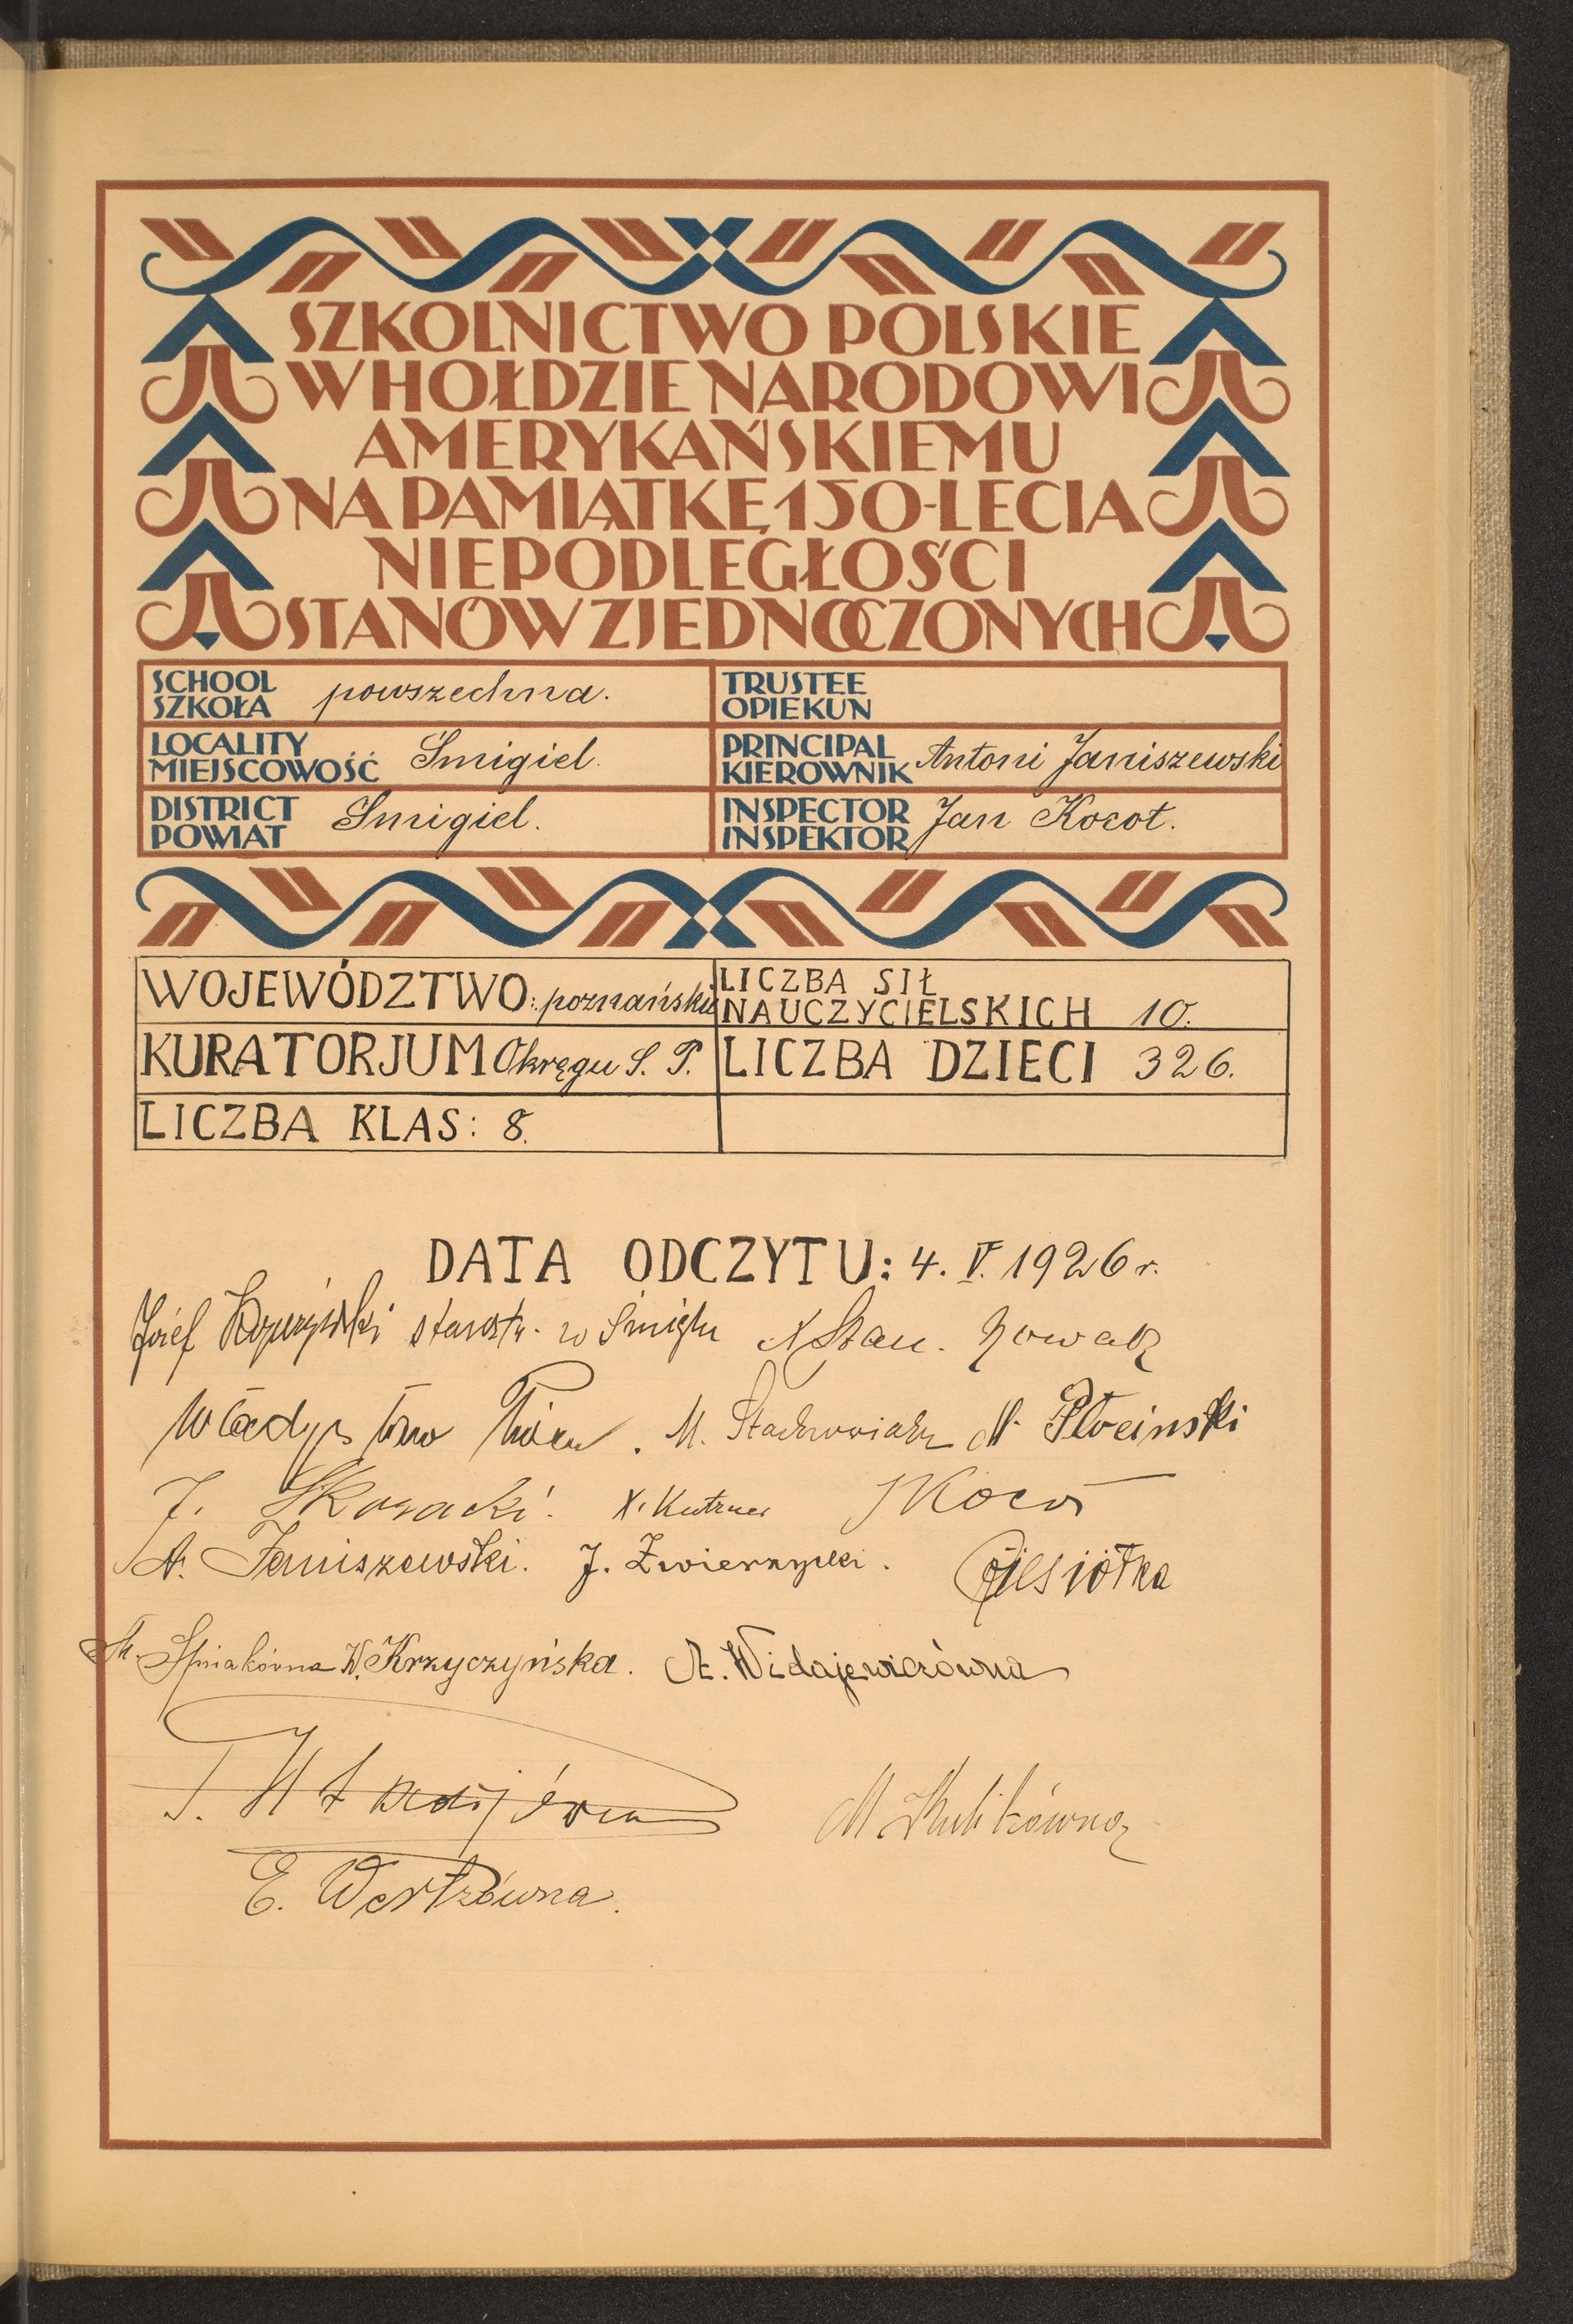 SZKOLNICTWO POLSKIE
W HOŁDZIE NARODOWI
AMERYKAŃSKIEMU
NA PAMIĄTKĘ 150-LECIA
NIEPODLEGŁOŚCI
STANÓW ZJEDNOCZONYCH
SCHOOL
SZKOŁA powszechna.
TRUSTEE
OPIEKUN
LOCALITY
MIEJSCOWOŚĆ Śmigiel.
PRINCIPAL
KIEROWNIK Antoni Janiszewski
DISTRICT
POWIAT Śmigiel.
INSPECTOR
INSPEKTOR Jan Kocot.
WOJEWÓDZTWO: poznańskie
LICZBA SIŁ
NAUCZYCIELSKICH 10.
KURATORJUM Okręgu S. P.
LICZBA DZIECI 326.
LICZBA KLAS: 8.
DATA ODCZYTU: 4. V. 1926 r.
Józef starosta w Śmiglu X Stan. Nowak
Władysław M. Stachowiak Płociński
J. Skoracki. X. Kutzner J Kocot
A. Janiszewski. J. Zwierzycki. Ciesiółka
Spniakówna W. Krzyczyńska. A. Widajewiczówna
T.
M Kulikówna
E. Westzówna.